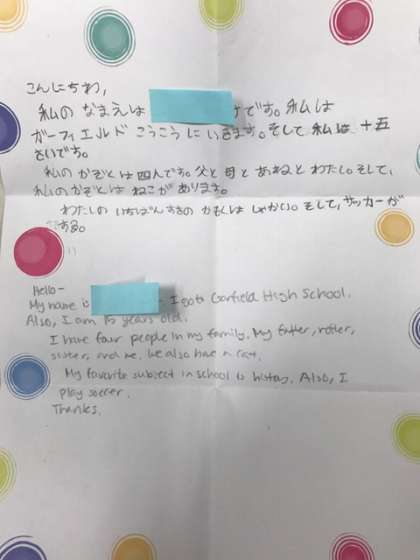 こんにちわ,
私の なまえは けです。私は
ガーフィエルド こうこう に いきます。そして 私は 十五
さいです。
私の かぞくは 四人です。父と 母と あねと わたし。そして,
私の かぞくは ねこが あります。
わたしの いちばん すきの かもくは しゃかい。そして, サッカーが
する。
Hello-
My name is - I go to Garfield High School.
Also, I am 15 years old.
I have four people in my family. My father, mother,
sister, and me. We also have a cat.
My favorite subject in school is history. Also, I
play soccer.
Thanks,